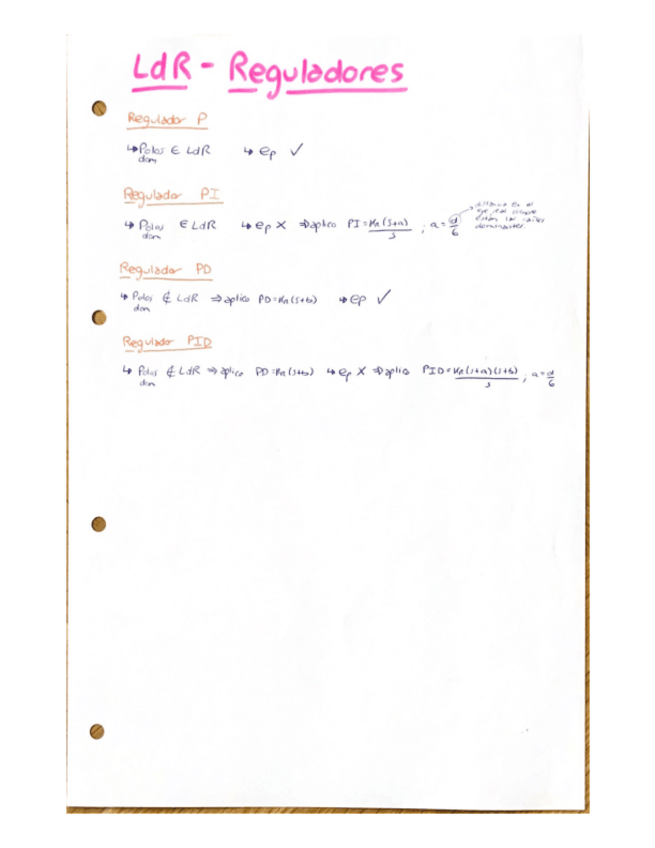 LdR - Reguladores
Regulador P
↳ Polos dom ∈ LdR ↳ ep ✓
Regulador PI
↳ Polos dom ∈ LdR ↳ ep X ⇒ aplico PI = KR(s+a)/s ; a = d/6 → distancia en el eje real donde están los polos dominantes.
Regulador PD
↳ Polos dom ∉ LdR ⇒ aplico PD = KR(s+b) ↳ ep ✓
Regulador PID
↳ Polos dom ∉ LdR ⇒ aplico PD = KR(s+b) ↳ ep X ⇒ aplico PID = KR(s+a)(s+b)/s ; a = d/6